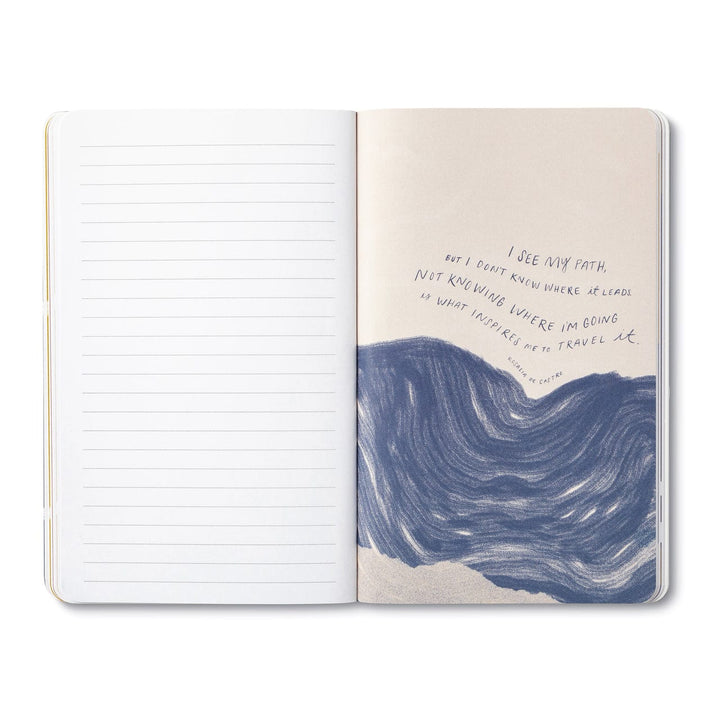 I SEE MY PATH,
BUT I DON'T KNOW WHERE it LEADS.
NOT KNOWING WHERE I'M GOING
is WHAT INSPIRES ME TO TRAVEL it.
ROSALIA DE CASTRO